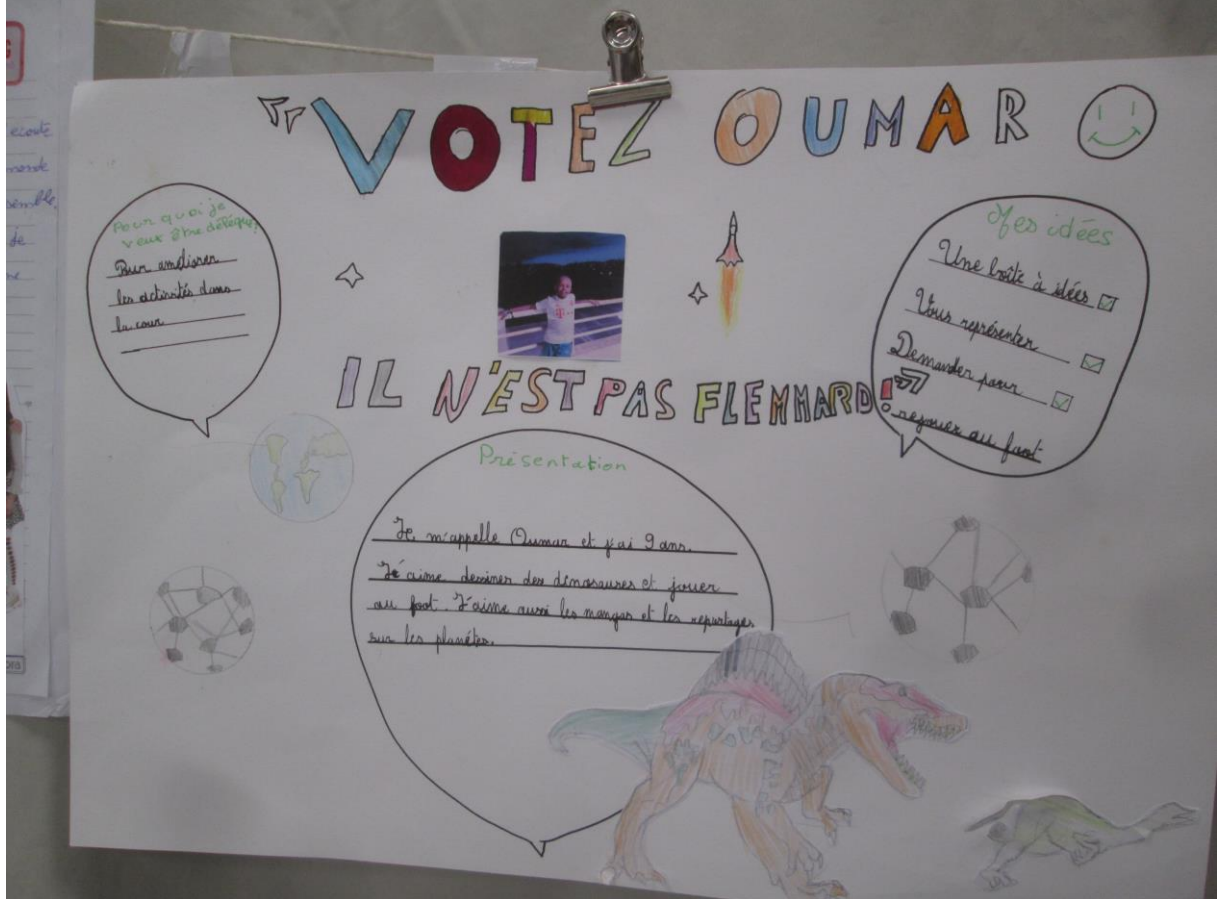 VOTEZ OUMAR
Pourquoi je
veux être délégué?
Pour améliorer
les activités dans
la cour
Mes idées
Une boîte à idées
Vous représenter
Demander pour
rejouer au foot
IL N'EST PAS FLEMMARD!
Présentation
Je m'appelle Oumar et j'ai 9 ans.
J'aime dessiner des dinosaures et jouer
au foot. J'aime aussi les mangas et les reportages
sur les planètes.
ecoute